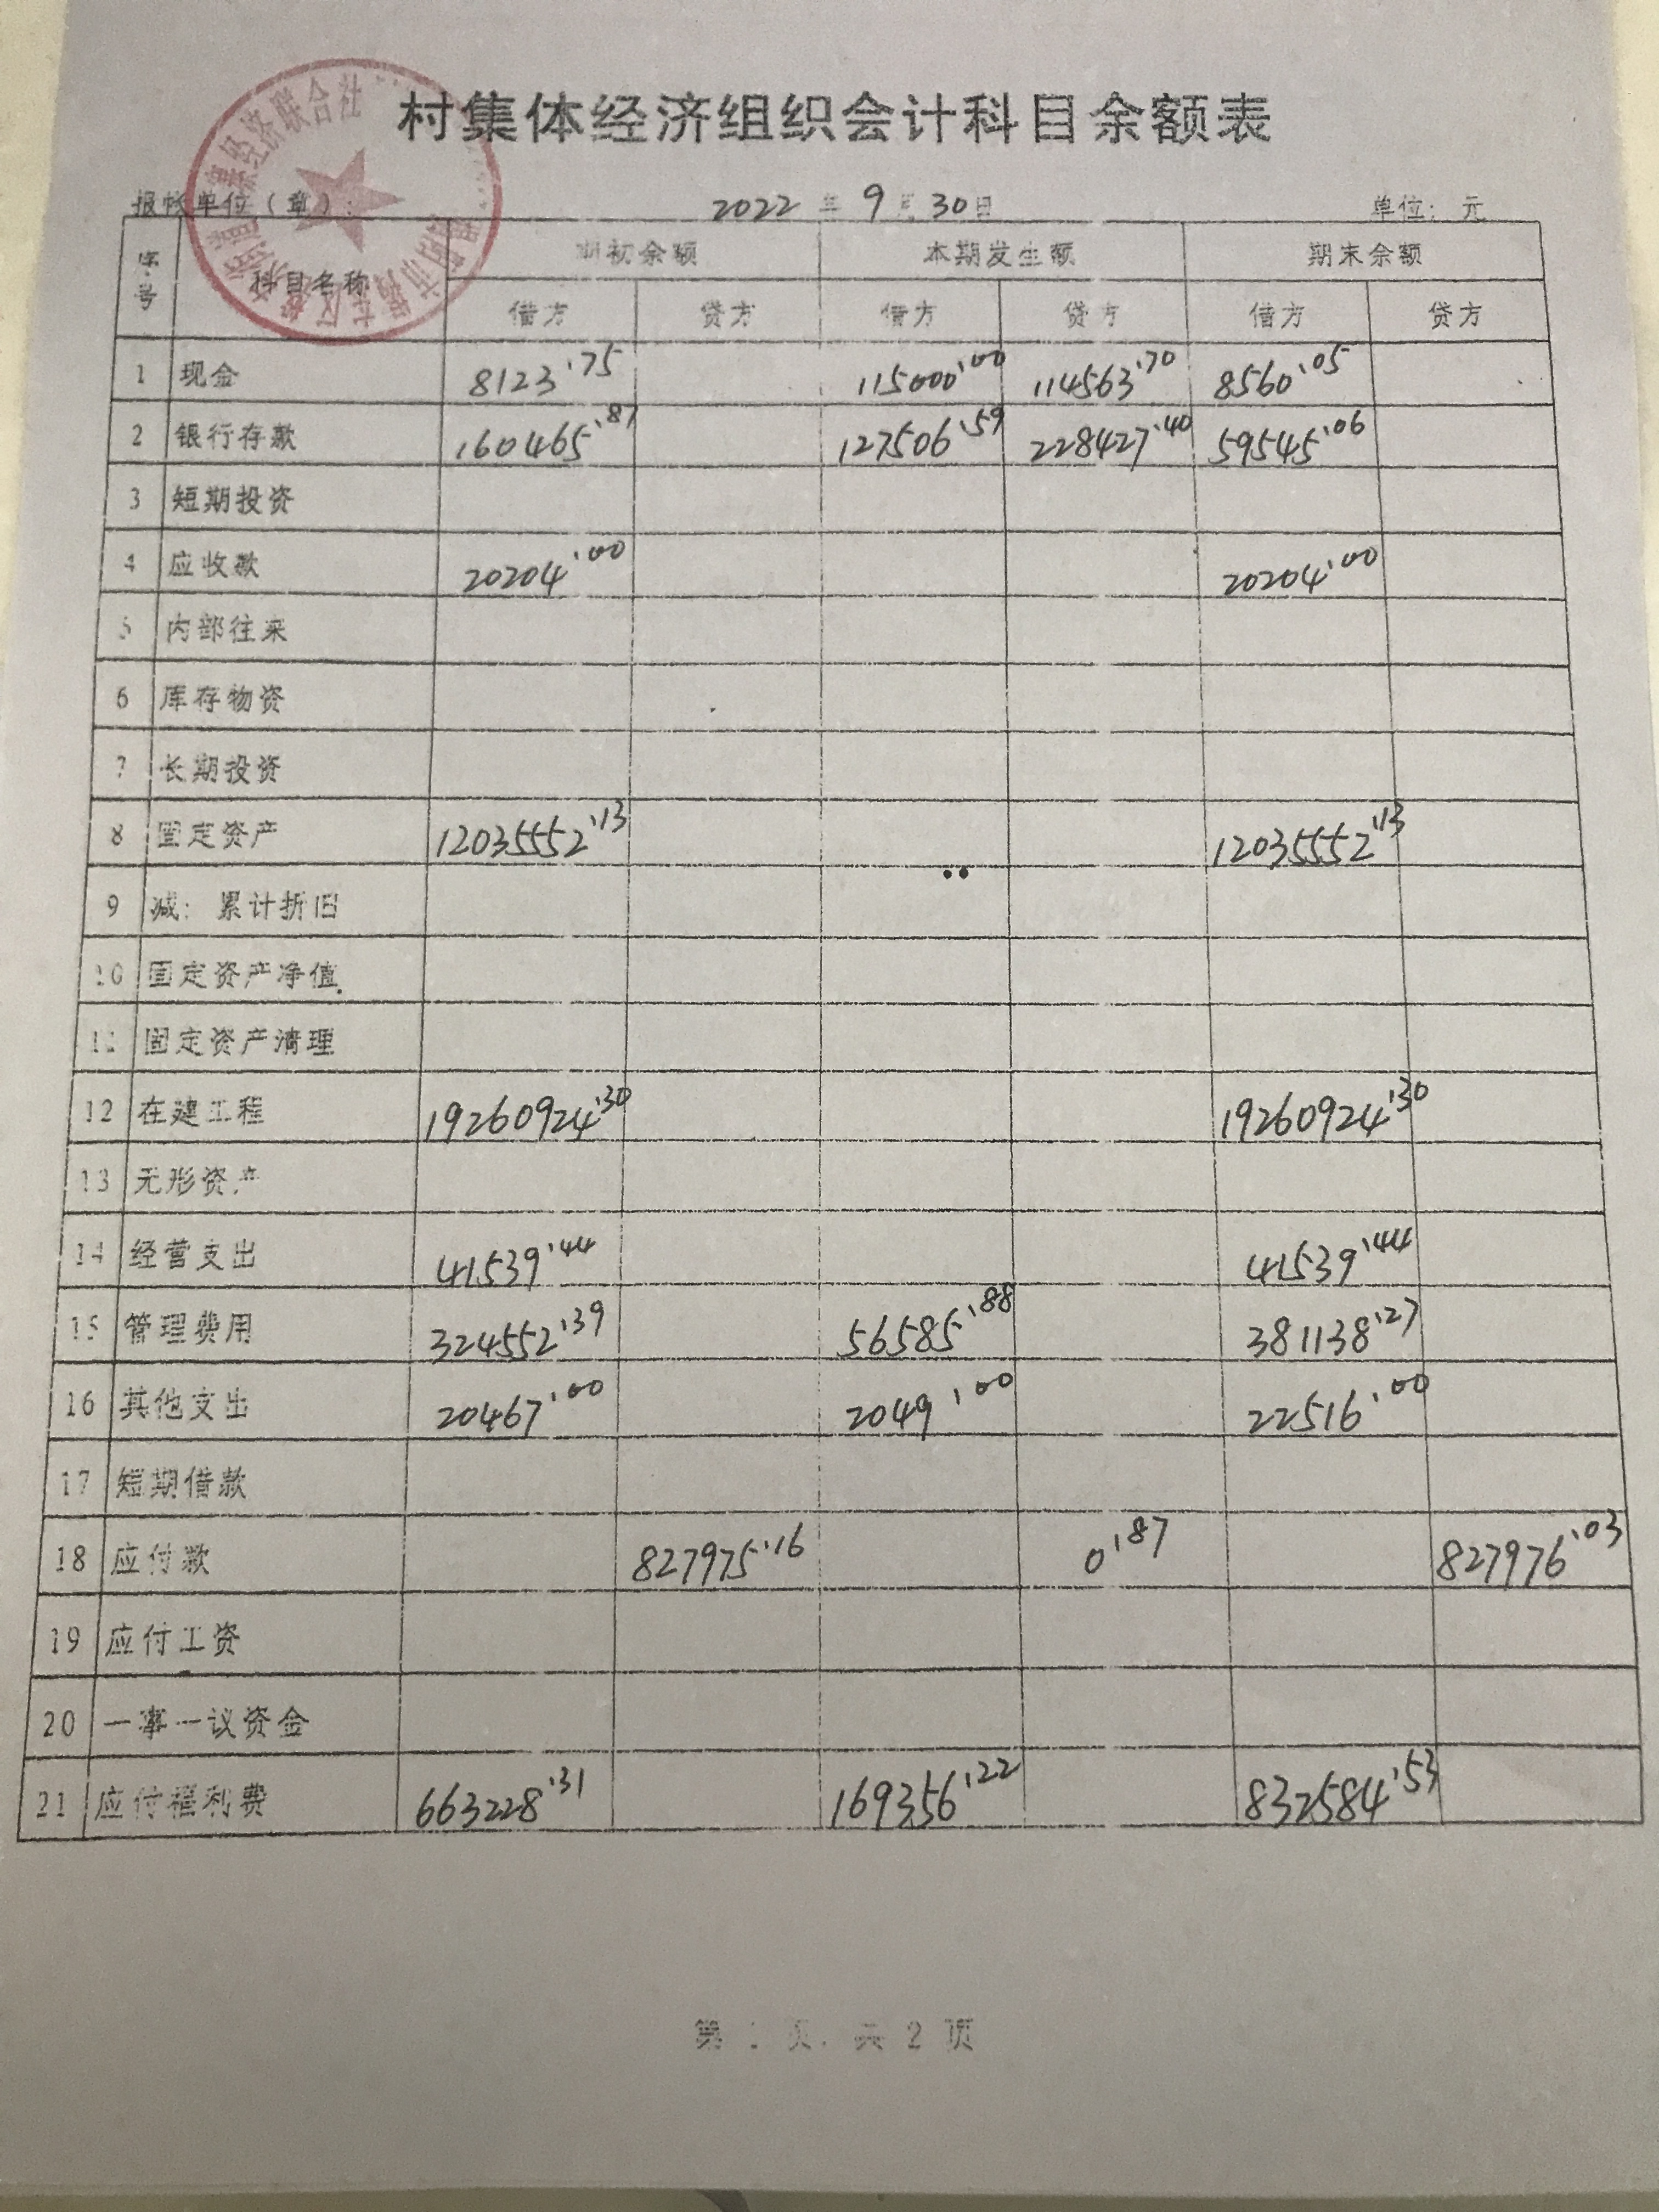 村集体经济组织会计科目余额表
经济联合社
报帐单位（章）： 2022 年 9 月 30 日 单位：元
序号 科目名称 期初余额 本期发生额 期末余额
借方 贷方 借方 贷方 借方 贷方
1 现金 8123.75 115000.00 114563.70 8560.05
2 银行存款 160465.87 127506.59 228427.40 59545.06
3 短期投资
4 应收款 20204.00 20204.00
5 内部往来
6 库存物资
7 长期投资
8 固定资产 12035552.13 12035552.13
9 减：累计折旧
10 固定资产净值
11 固定资产清理
12 在建工程 19260924.30 19260924.30
13 无形资产
14 经营支出 41539.44 41539.44
15 管理费用 324552.39 56585.88 381138.27
16 其他支出 20467.00 2049.00 22516.00
17 短期借款
18 应付款 827975.16 0.87 827976.03
19 应付工资
20 一事一议资金
21 应付福利费 663228.31 169356.22 832584.53
第 1 页，共 2 页